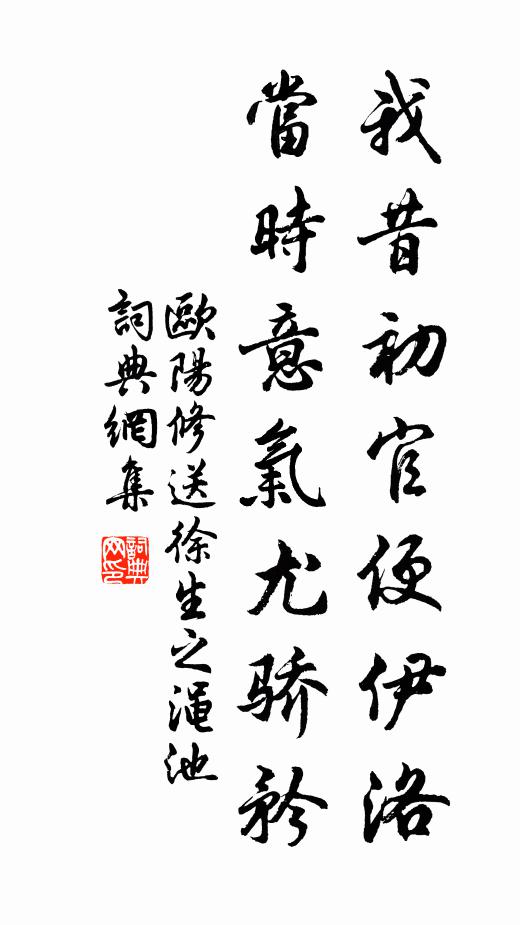 我昔初官便伊洛
當時意氣尤骄矜
歐陽修送徐生之渑池
詞典網集
詞典网印